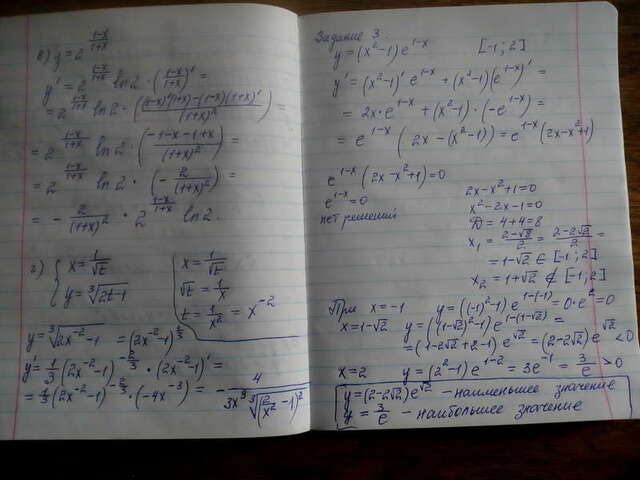 в) y = 2^((1-x)/(1+x))
y' = 2^((1-x)/(1+x)) ln2 · ((1-x)/(1+x))' =
= 2^((1-x)/(1+x)) ln2 · (((1-x)'(1+x) - (1-x)(1+x)')/(1+x)²) =
= 2^((1-x)/(1+x)) ln2 · ((-1-x-1+x)/(1+x)²) =
= 2^((1-x)/(1+x)) ln2 · (-2/(1+x)²) =
= -2/(1+x)² · 2^((1-x)/(1+x)) ln2.
г) { x = 1/√t
y = ∛(2t-1)
x = 1/√t
√t = 1/x
t = 1/x² = x⁻²
y = ∛(2x⁻²-1) = (2x⁻²-1)^(1/3)
y' = 1/3 (2x⁻²-1)^(-2/3) · (2x⁻²-1)' =
= 1/3 (2x⁻²-1)^(-2/3) · (-4x⁻³) = - 4/(3x³ ∛((2/x² - 1)²))
Задание 3
y = (x²-1)e^(1-x) [-1; 2]
y' = (x²-1)' e^(1-x) + (x²-1)(e^(1-x))' =
= 2x · e^(1-x) + (x²-1) · (-e^(1-x)) =
= e^(1-x) (2x - (x²-1)) = e^(1-x) (2x-x²+1)
e^(1-x) (2x-x²+1) = 0
e^(1-x) = 0
нет решений
2x-x²+1=0
x²-2x-1=0
D = 4+4=8
x₁ = (2-√8)/2 = (2-2√2)/2 =
= 1-√2 ∈ [-1; 2]
x₂ = 1+√2 ∉ [-1; 2]
При x = -1 y = ((-1)²-1) e^(1-(-1)) = 0 · e² = 0
x = 1-√2 y = ((1-√2)²-1) e^(1-(1-√2)) =
= (1-2√2+2-1) e^√2 = (2-2√2) e^√2 < 0
x = 2 y = (2²-1) e^(1-2) = 3e⁻¹ = 3/e > 0
y = (2-2√2) e^√2 - наименьшее значение
y = 3/e - наибольшее значение